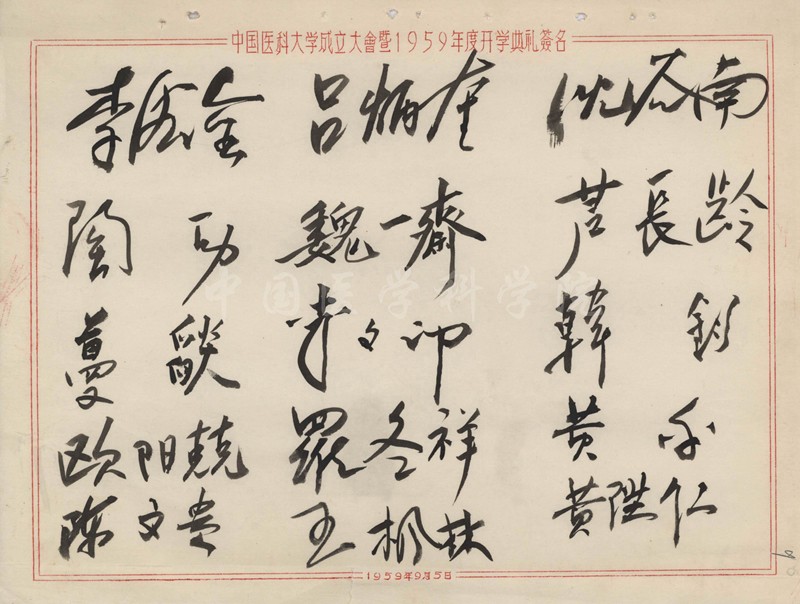 中国医科大学成立大會暨1959年度开学典礼簽名
李 全 吕炳奎 沈谷南
陶 功 魏一齋 芦長齡
曼 燄 李 韓 釗
欧阳競 羅冬祥 黄
陈文贵 王枫林 黄陞仁
中国医学科学院
1959年9月5日